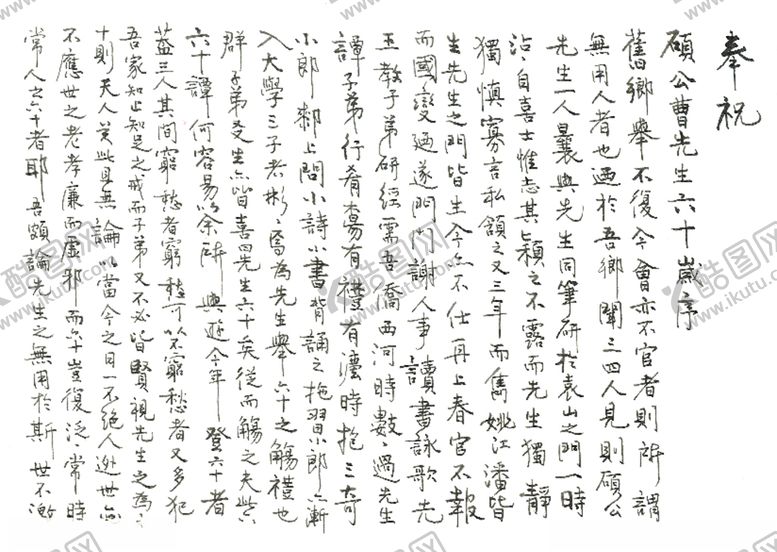 奉祝
碩公曹先生六十歲序
舊鄉舉不復令會亦不官者則所謂
無用人者也迺於吾鄉聞三四人見則碩公
先生一人曩與先生同筆研於袁山之門一時
沾沾自喜士惟志其穎之不露而先生獨靜
獨慎寡言私頷之又三年而雋姚江潘皆
生先生之門皆生今亦不仕再上春官不報
而國變迺遂閉門謝人事讀書詠歌先言
王教子弟研經需吾僑西河時數過先生
譚子弟行肴觴有禮有瀍時抱三奇
小郎都上問小詩小書背誦之拖習小郎亦漸
入大學三子者彬彬焉為先生舉六十之觴禮也
群子弟及生亦皆喜曰先生六十矣從而觴之夫此六
六十譚何容易以余所與遊今年登六十者
葢三人其間窮愁者窮愁可以不窮愁者又多犯
吾家知止知足之戒而子弟又不必皆賢視先生之為六
十則天人笑此且無論以當今之日一不絕人逃世亦
不應世之老孝廉而虛邪而六十豈復泛常時
常人之六十者耶吾頗論先生之無用於斯世不激
酷图网
www.ikutu.com